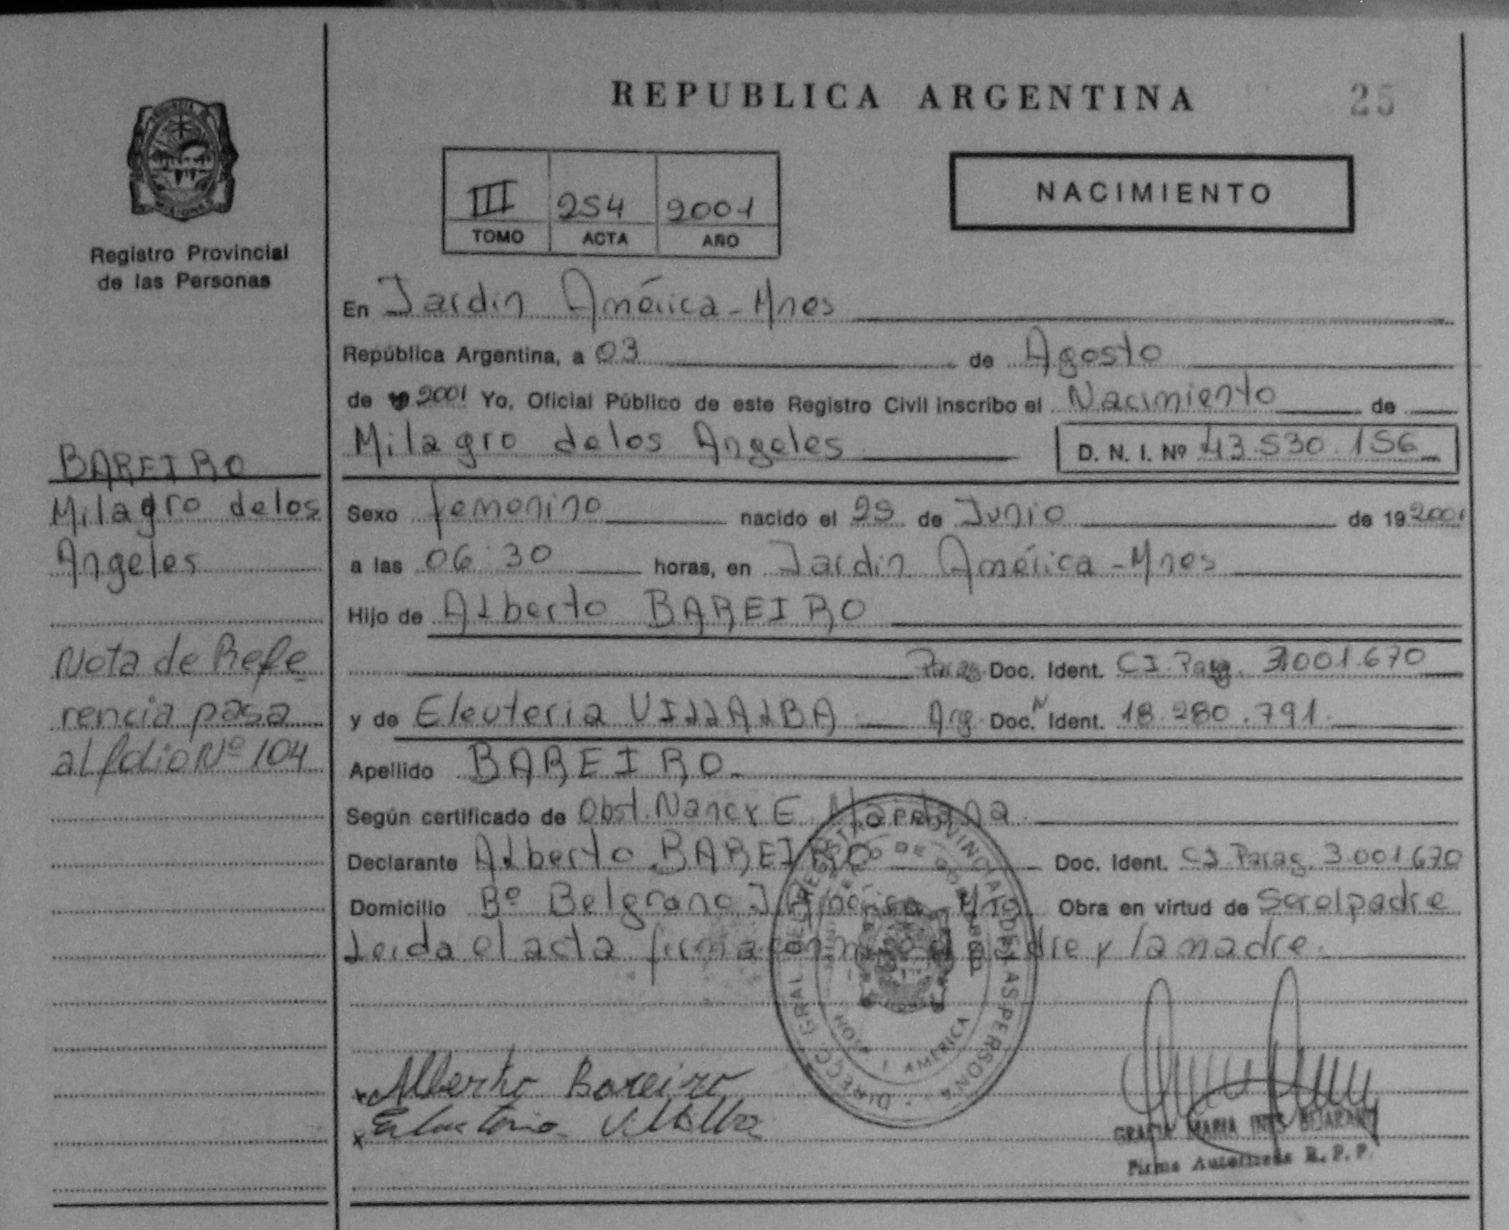 REPUBLICA ARGENTINA 25
NACIMIENTO
III 254 2001
TOMO ACTA AÑO
PROVINCIA DE MISIONES
Registro Provincial
de las Personas
En Jardin América-Mnes
República Argentina, a 03 de Agosto
de 19 2001 Yo, Oficial Público de este Registro Civil inscribo el Nacimiento de
Milagro delos Angeles D. N. I. Nº 43.530.156
BAREIRO
Milagro delos
Angeles
Sexo femenino nacido el 29 de Junio de 19 2001
a las 06:30 horas, en Jardin América-Mnes
Hijo de Alberto BAREIRO
Parag. Doc. Ident. CI. Parag. 3.001.670
y de Eleuteria VILLALBA Arg. Doc. N Ident. 18.280.791.
Nota de Refe
rencia pasa
al folio Nº 104
Apellido BAREIRO.
Según certificado de Obst. Nancy E.
Declarante Alberto BAREIRO Doc. Ident. CI. Parag. 3.001.670
Domicilio Bº Belgrano J. América Mnes Obra en virtud de Ser el padre
Leida el acta firma conmigo el padre y la madre.
DIRECC. GRAL. DEL REGISTRO PROVINCIAL DE LAS PERSONAS
MINISTERIO DE GOBIERNO
AMERICA
Alberto Bareiro
Eleuteria Villalba
GRACIA MARIA INES BEJARANO
Firma Autorizada R. P. P.